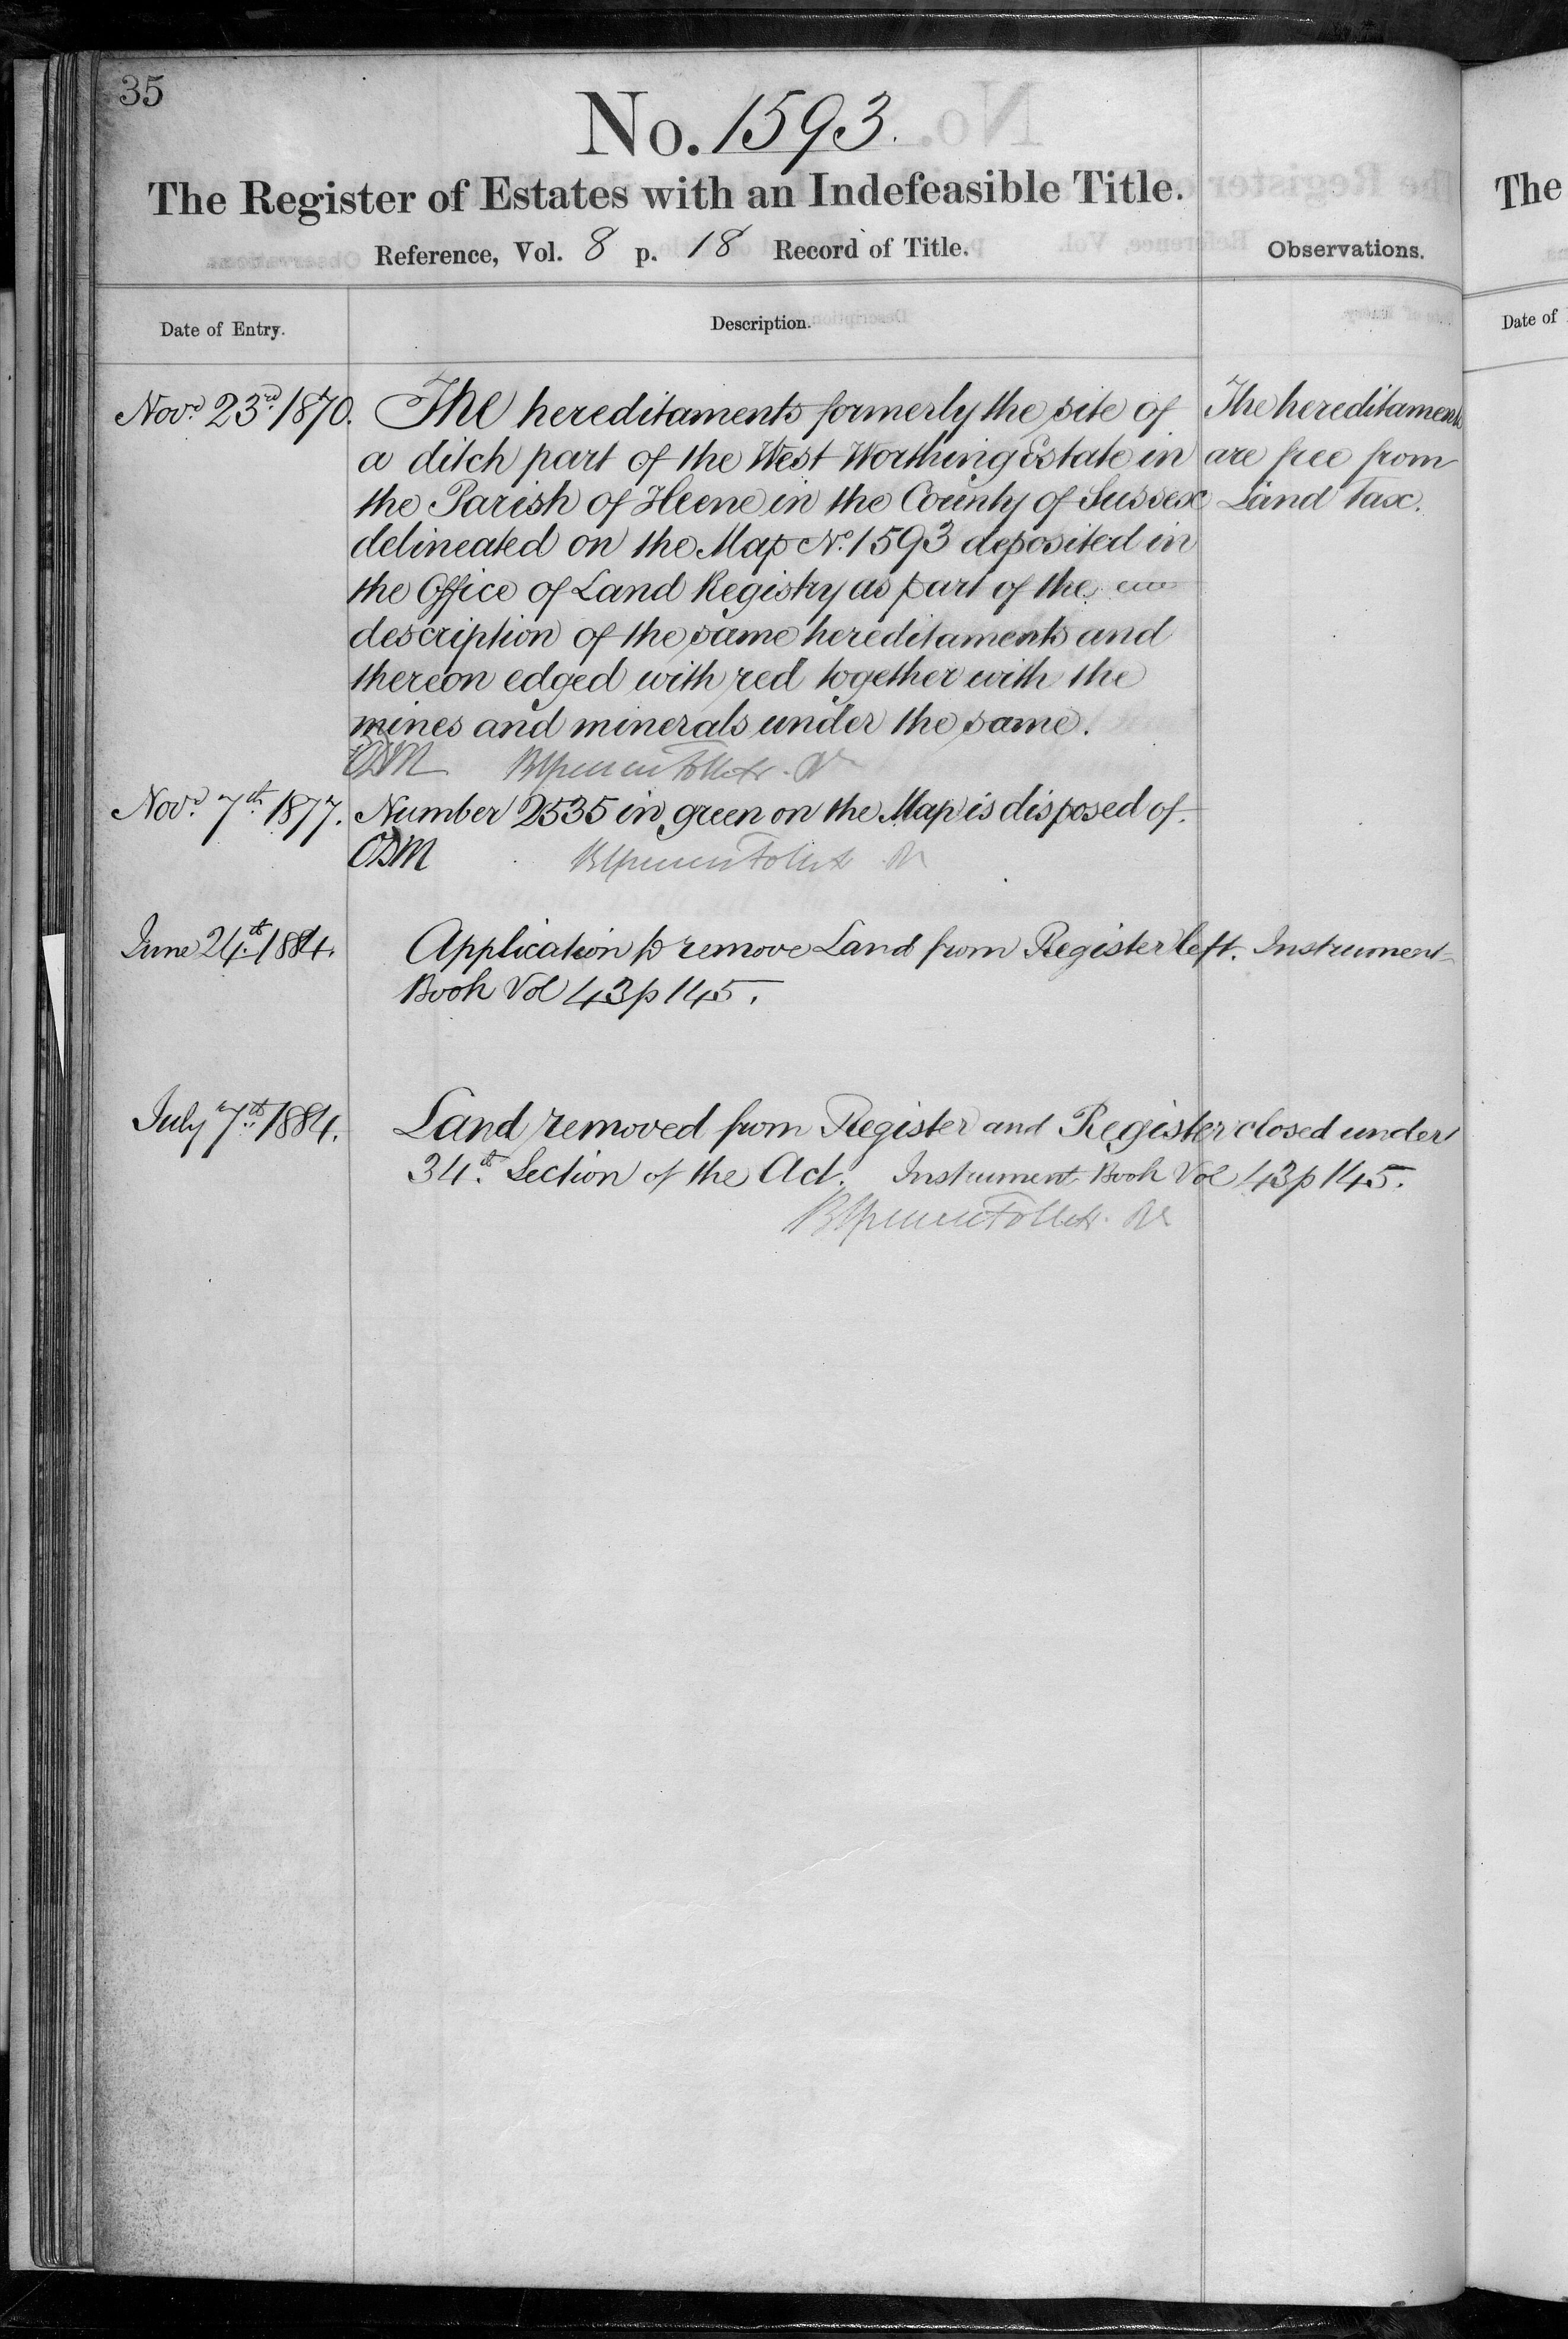 35
No. 1593.
The Register of Estates with an Indefeasible Title.
Reference, Vol. 8 p. 18 Record of Title.
Observations.
Date of Entry.
Description.
Novr 23rd 1870. The hereditaments formerly the site of
a ditch part of the West Worthing Estate in
the Parish of Heene in the County of Sussex
delineated on the Map No. 1593 deposited in
the Office of Land Registry as part of the
description of the same hereditaments and
thereon edged with red together with the
mines and minerals under the same.
The hereditaments
are free from
Land Tax.
Novr 7th 1877. Number 2535 in green on the Map is disposed of.
June 24th 1884. Application to remove Land from Register left. Instrument
Book Vol 43 p 145.
July 7th 1884. Land removed from Register and Register closed under
34th Section of the Act. Instrument Book Vol 43 p 145.
The
Date of